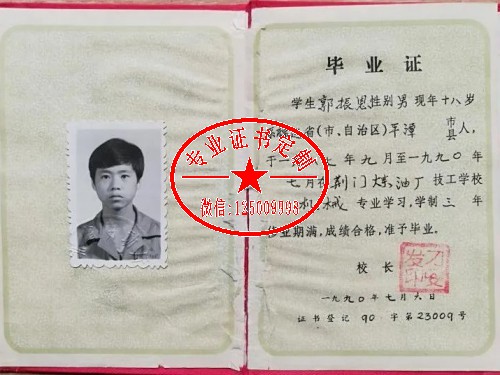 毕业证
学生郭振恩性别男现年十八岁
省(市、自治区)平潭市县人,
于一九 年九月至一九九〇年
七月在荆门炼油厂技工学校
机械专业学习,学制三年
毕业期满,成绩合格,准予毕业。
校长
一九九〇年七月 日
证书登记90字第23009号
专业证书定制
微信:125009593